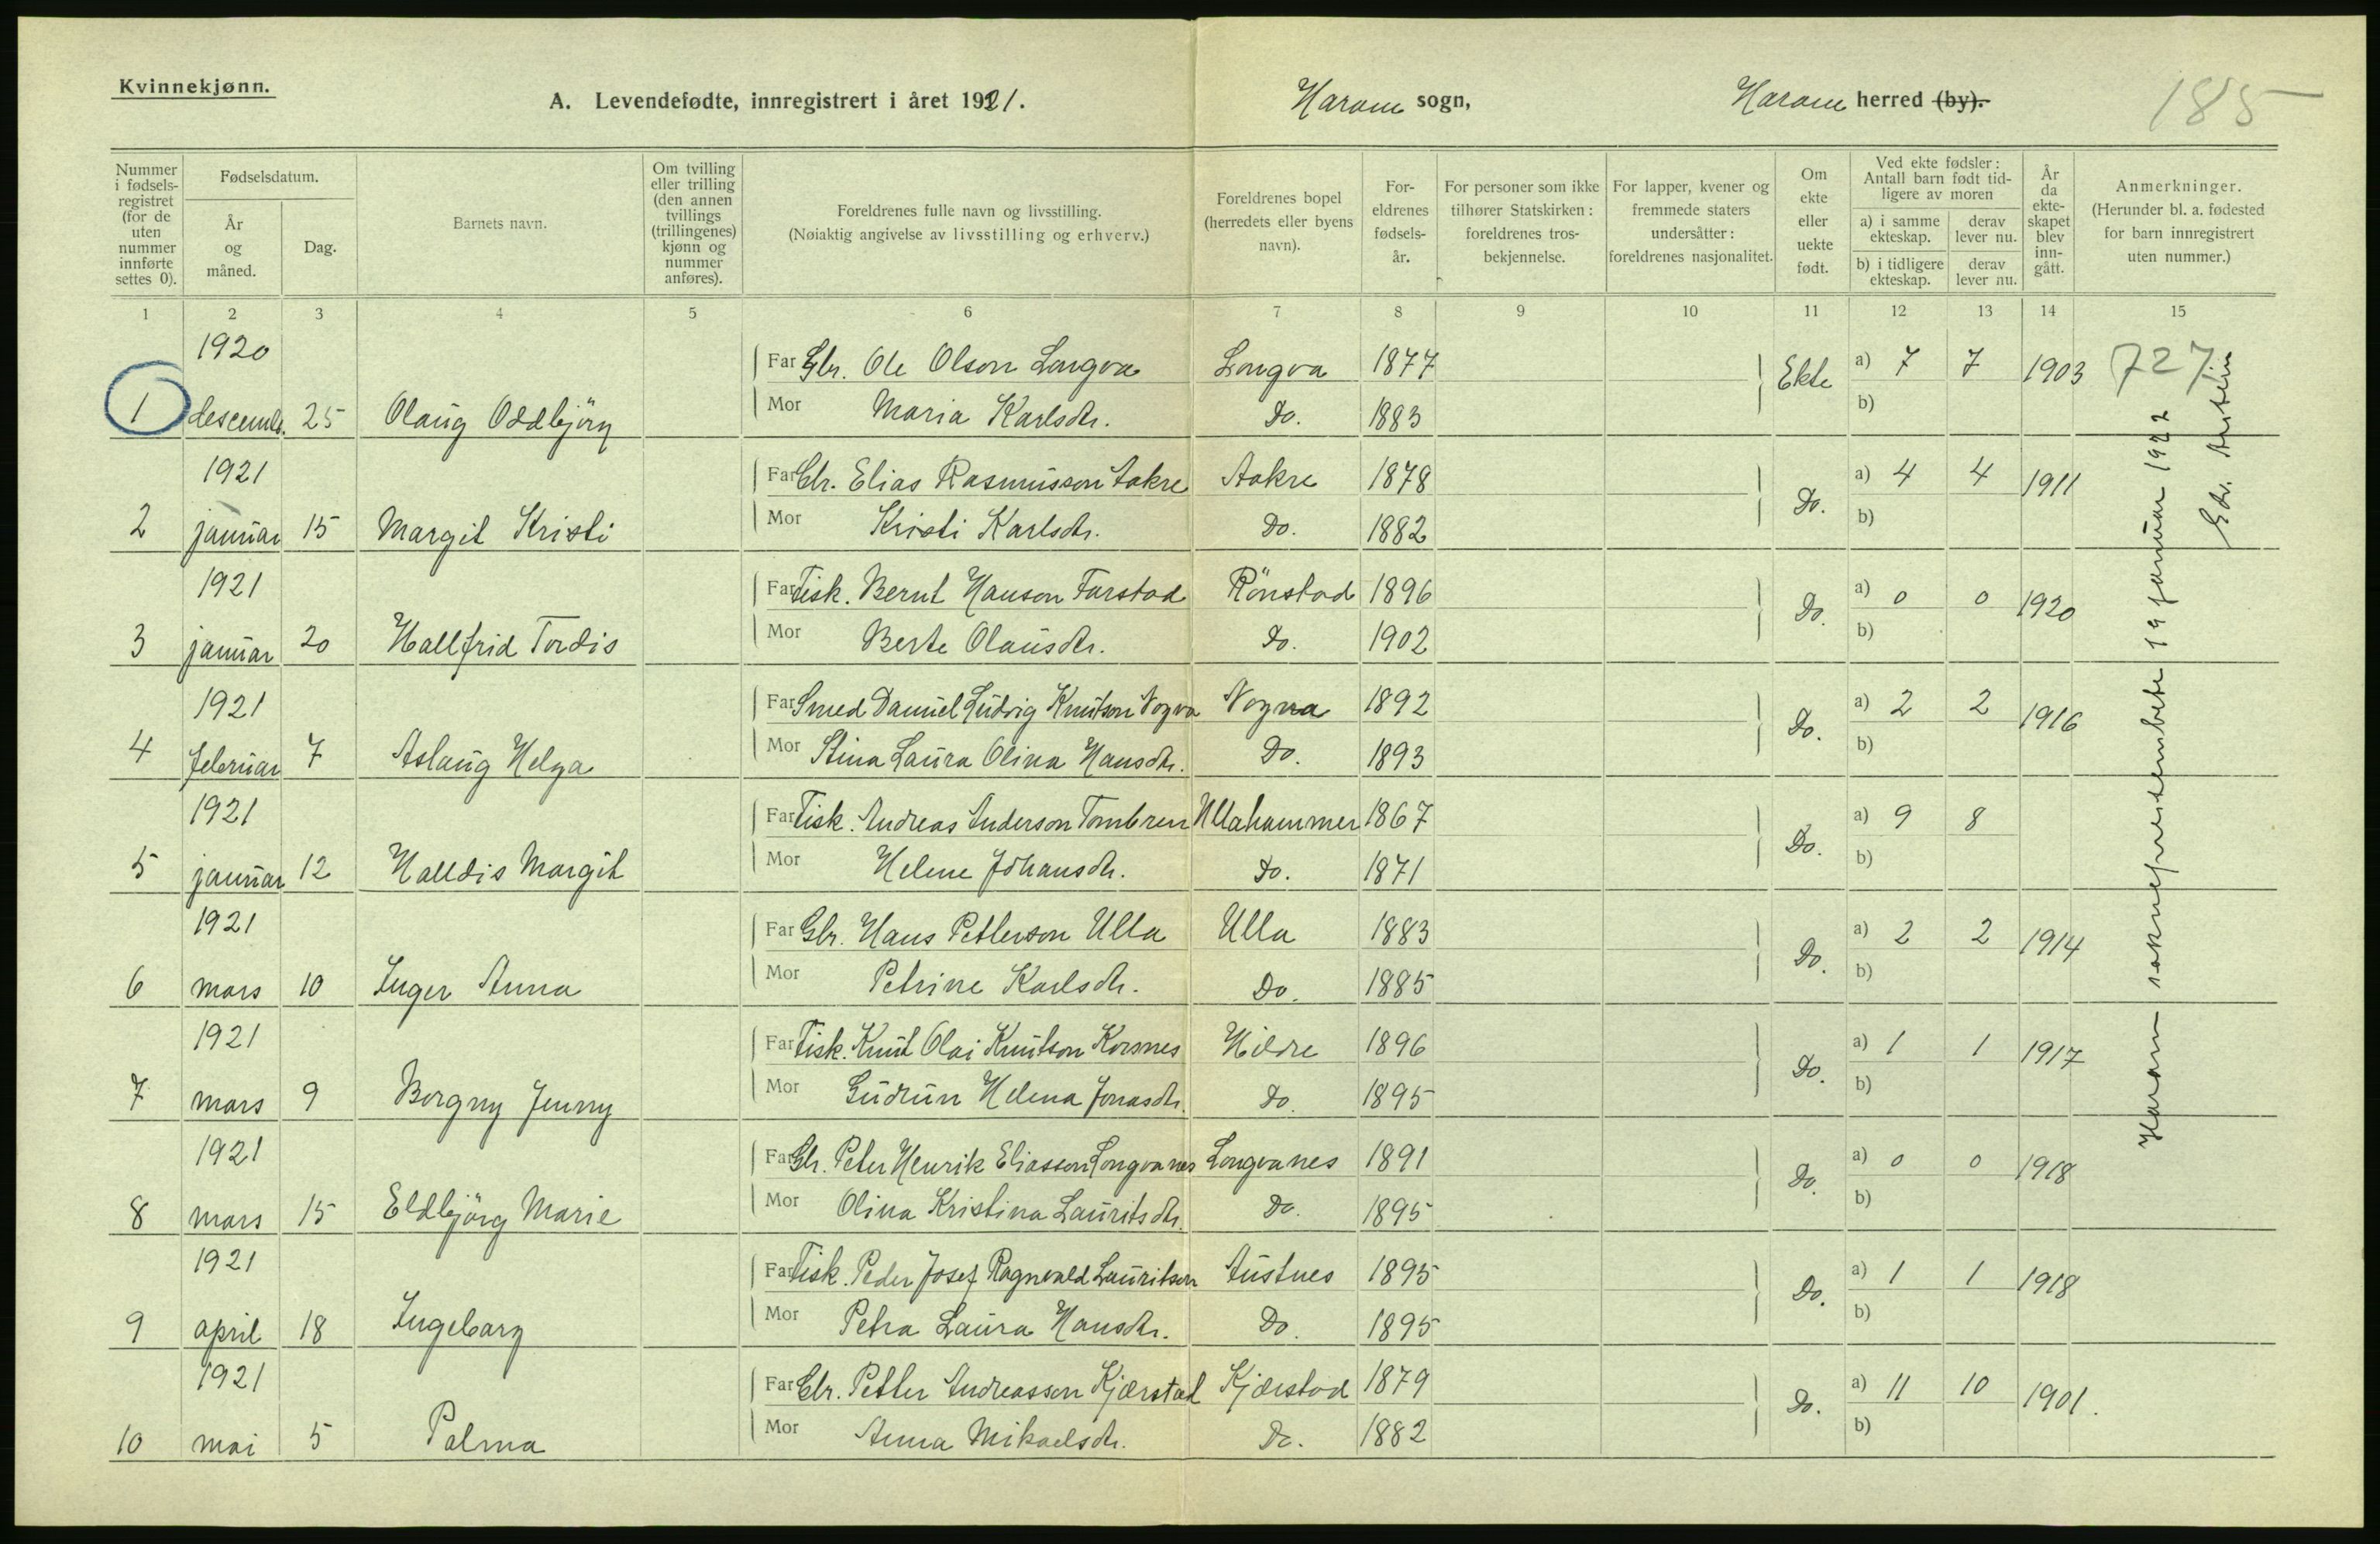 Kvinnekjønn.
A. Levendefødte, innregistrert i året 1921.
Haram sogn,
Haram herred (by).
185
Nummer i fødsels-registret (for de uten nummer innførte settes 0).
Fødselsdatum.
År og måned.
Dag.
Barnets navn.
Om tvilling eller trilling (den annen tvillings (trillingenes) kjønn og nummer anføres).
Foreldrenes fulle navn og livsstilling.
(Nøiaktig angivelse av livsstilling og erhverv.)
Foreldrenes bopel (herredets eller byens navn).
For-eldrenes fødsels-år.
For personer som ikke tilhører Statskirken: foreldrenes tros-bekjennelse.
For lapper, kvener og fremmede staters undersåtter: foreldrenes nasjonalitet.
Om ekte eller uekte født.
Ved ekte fødsler: Antall barn født tid-ligere av moren
a) i samme ekteskap.
derav lever nu.
b) i tidligere ekteskap.
derav lever nu.
År da ekte-skapet blev inn-gått.
Anmerkninger.
(Herunder bl. a. fødested for barn innregistrert uten nummer.)
1 2 3 4 5 6 7 8 9 10 11 12 13 14 15
1920
Far Gbr. Ole Olson Longva Longva 1877 Ekte a) 7 7 1903 727
1 descemb. 25 Olaug Oddbjörg Mor Maria Karlsdtr. Do. 1883 b)
1921
Far Gbr. Elias Rasmusson Aakre Aakre 1878 Do. a) 4 4 1911
2 januar 15 Margit Kristi Mor Kristi Karlsdtr. Do. 1882 b)
1921
Far Fisk. Bernt Hanson Farstad Rönstad 1896 Do. a) 0 0 1920
3 januar 20 Hallfrid Tordis Mor Berte Olausdtr. Do. 1902 b)
1921
Far Smed Daniel Ludvig Knutson Nogva Nogva 1892 Do. a) 2 2 1916
4 februar 7 Aslaug Helga Mor Stina Laura Olina Hansdtr. Do. 1893 b)
1921
Far Fisk. Andreas Anderson Tombren Ullahammer 1867 Do. a) 9 8
5 januar 12 Halldis Margit Mor Helene Johansdtr. Do. 1871 b)
1921
Far Gbr. Hans Petterson Ulla Ulla 1883 Do. a) 2 2 1914
6 mars 10 Inger Anna Mor Petrine Karlsdtr. Do. 1885 b)
1921
Far Fisk. Knut Olai Knutson Korsnes Hildre 1896 Do. a) 1 1 1917
7 mars 9 Borgny Jenny Mor Gudrun Helena Jonasdtr. Do. 1895 b)
1921
Far Gbr. Peter Henrik Eliasson Longvanes Longvanes 1891 Do. a) 0 0 1918
8 mars 15 Eldbjörg Marie Mor Olina Kristina Lauritsdtr. Do. 1895 b)
1921
Far Fisk. Peder Josef Ragnvald Lauritson Austnes 1895 Do. a) 1 1 1918
9 april 18 Ingeborg Mor Petra Laura Hansdtr. Do. 1895 b)
1921
Far Gbr. Petter Andreasson Kjærstad Kjærstad 1879 Do. a) 11 10 1901.
10 mai 5 Palma Mor Anna Mikaelsdtr. Do. 1882 b)
Haram soknepresetembete 19 januar 1922